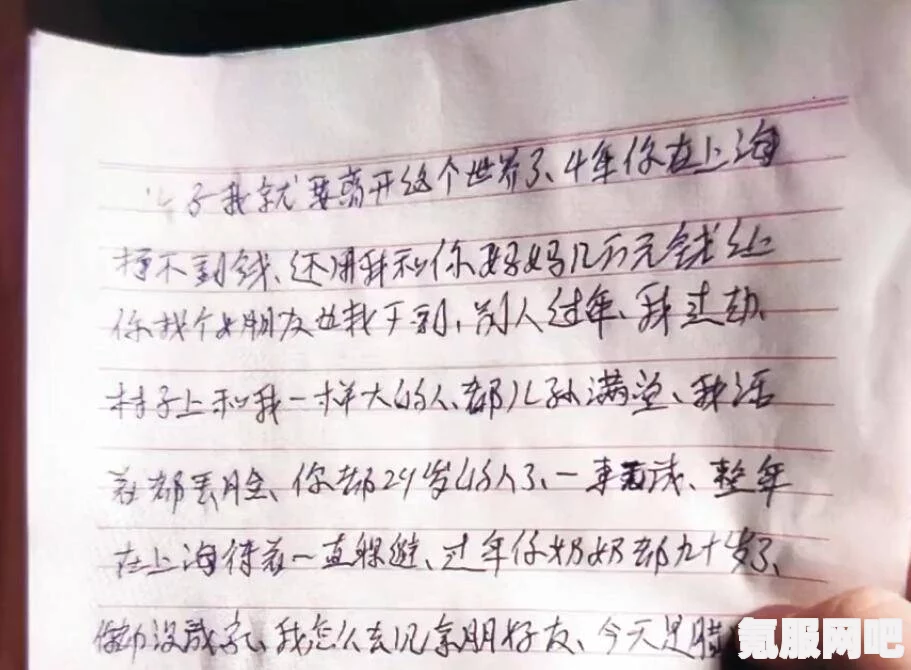 子我就要离开这个世界了、4年你在上海
挣不到钱、还用我和你妈妈几万元钱、让
你找个女朋友也找不到、别人过年、我过劫、
村子上和我一样大的人、都儿孙满堂、我活
着都丢脸、你都29岁的人了、一事无成、整年
在上海待着一直躲避、过年你奶奶都九十岁了、
你都没成家、我怎么去见亲朋好友、今天是腊
氪服网吧